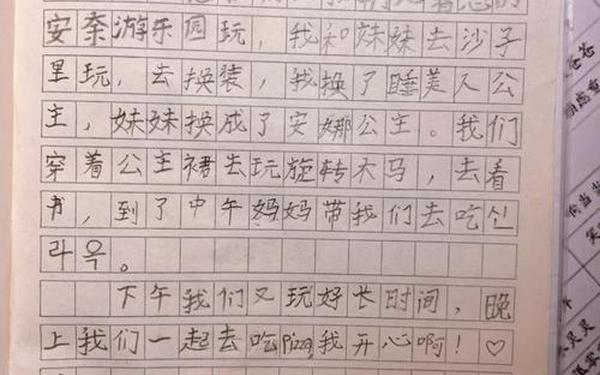 安奈游乐园玩，我和妹妹去沙子
里玩，去换装，我换了睡美人公
主，妹妹换成了安娜公主。我们
穿着公主裙去玩旋转木马，去看
书，到了中午妈妈带我们去吃신
라옥。
下午我们又玩好长时间，晚
上我们一起去吃pizza，我开心啊！♡